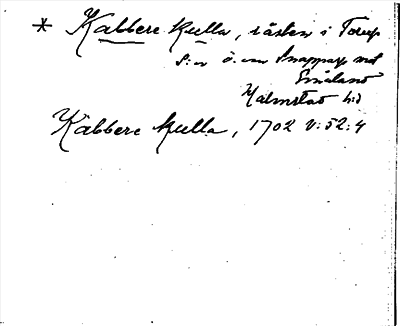 * Kabbere kulla, råsten i Torup
s:n ö. om Snapparp mot
Småland
Halmstad h:d
Kabbere kulla, 1702 V:52:4